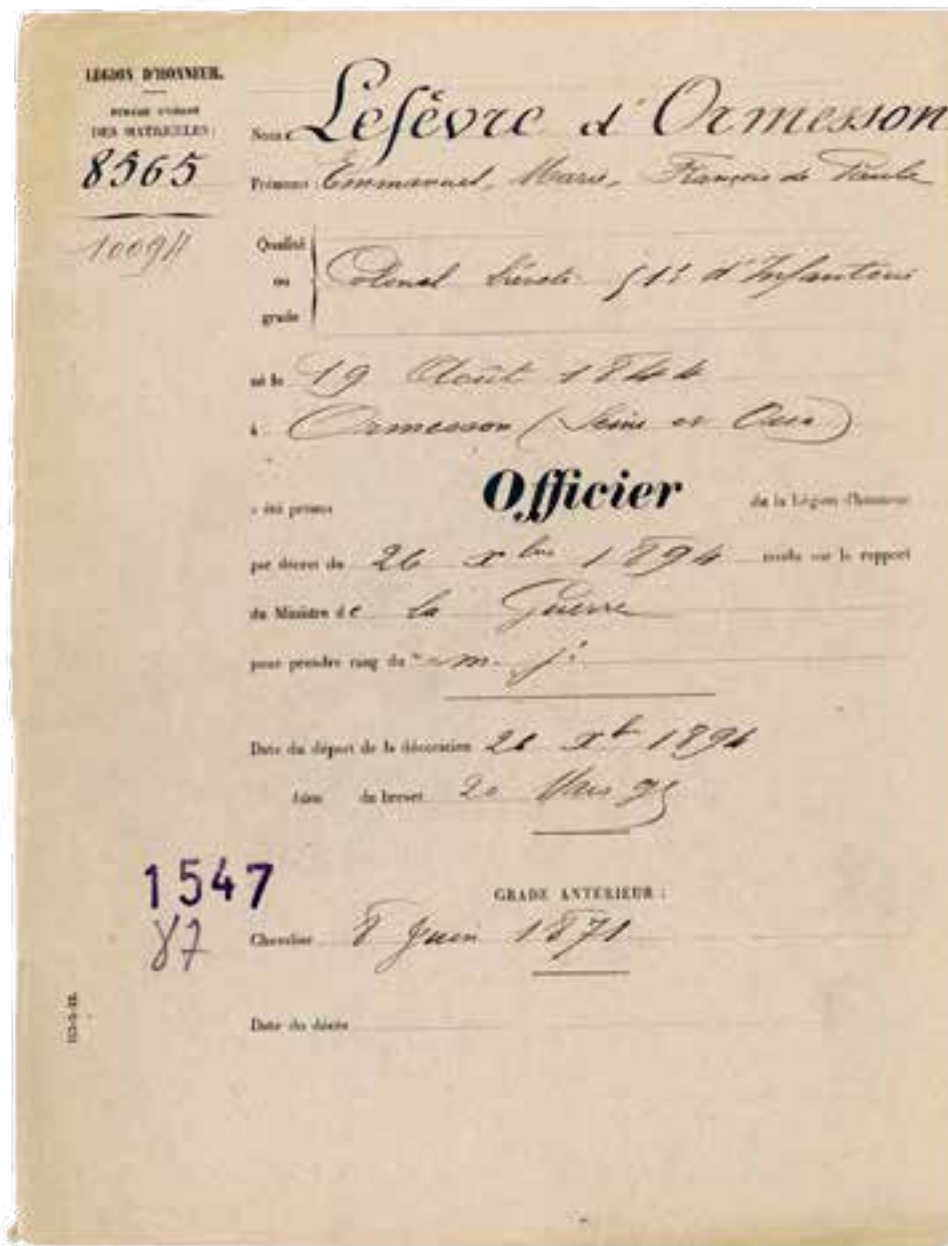 LÉGION D'HONNEUR.
DES MATRICULES :
8565
10094
Nom : Lefèvre d'Ormesson
Prénoms : Emmanuel, Marie, François de Paule
Qualité
ou
grade
Colonel 51e d'Infanterie
né le 19 Août 1844
à Ormesson (Seine et Oise)
a été promu Officier de la Légion d'honneur
par décret du 26 xbre 1894 rendu sur le rapport
du Ministre de la Guerre
pour prendre rang du m. j.
Date du départ de la décoration 26 Xbre 1894
du brevet 20 Mars 95
1547
87
GRADE ANTÉRIEUR :
Chevalier 8 Juin 1871
Date du décès